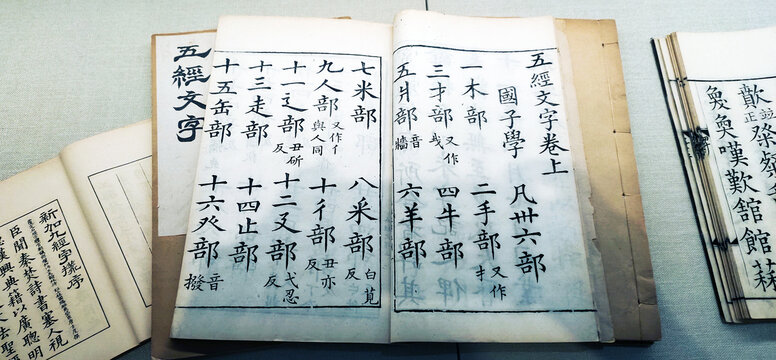 五經文字卷上
國子學 凡卅六部
一木部 二手部 又作扌
三才部 又作 四牛部
五爿部 音牆 六羊部
七米部 八釆部 白莧反
九人部 又作亻與人同 十彳部 丑亦反
十一辵部 丑斫反 十二廴部 弋忍反
十三走部 十四止部
十五缶部 十六癶部 音撥
五經文字
新加九經字樣序
臣聞秦焚詩書塞人視
漢興典籍以廣聰明
嘆歎舘館